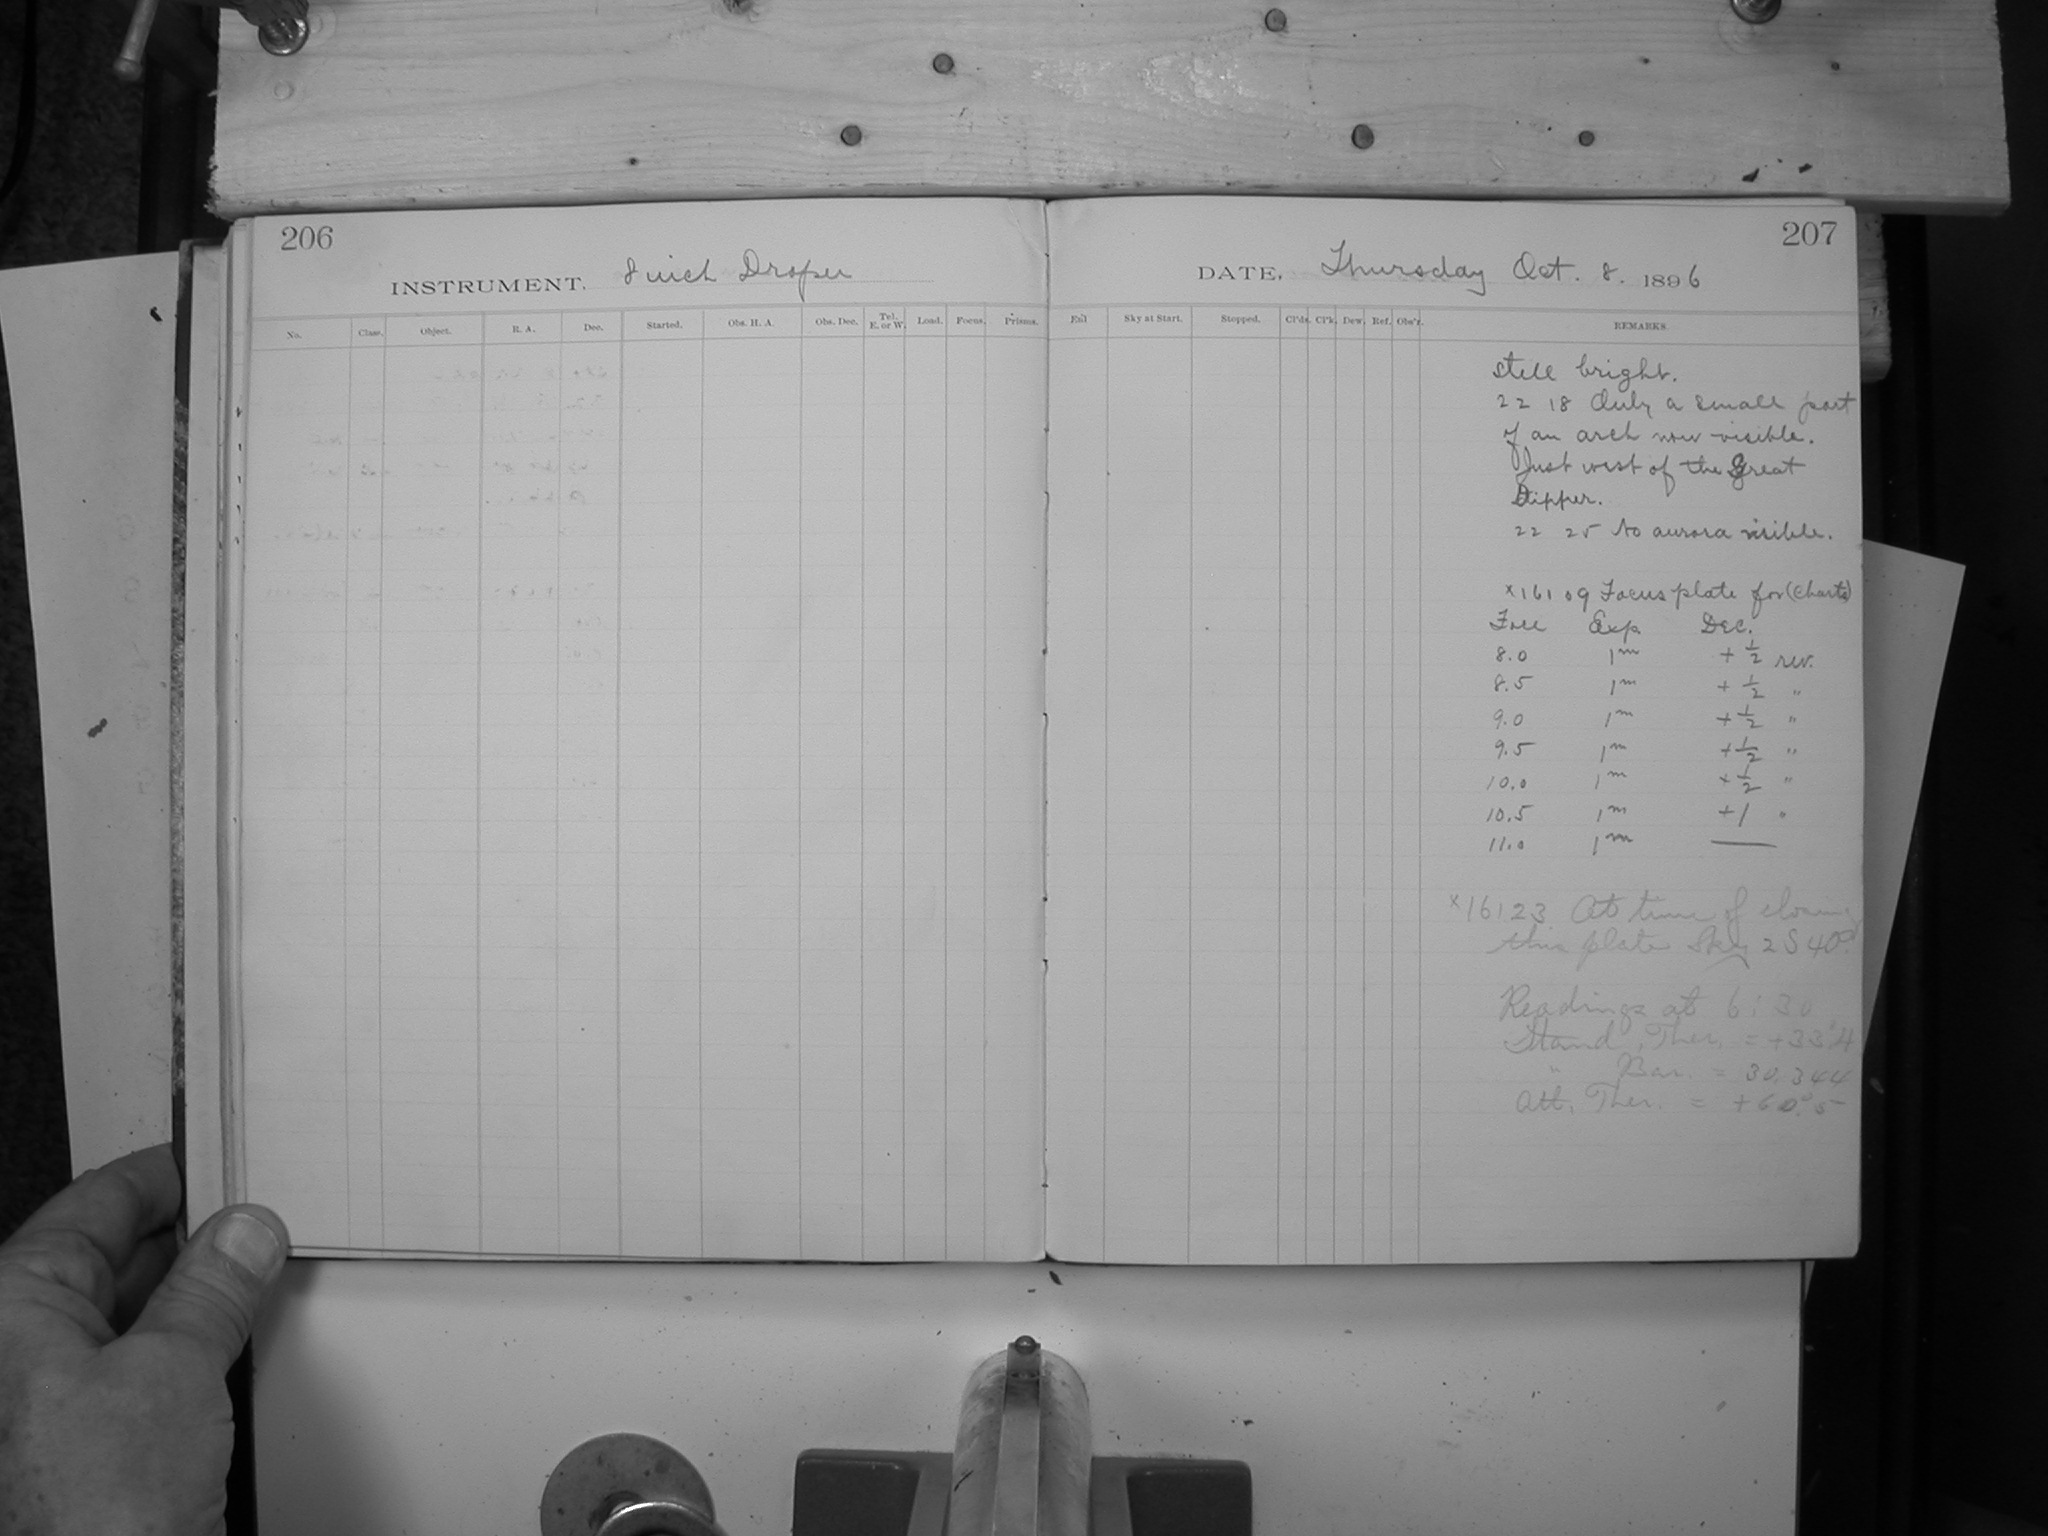 206
INSTRUMENT. 8 inch Draper
No. Class. Object. R. A. Dec. Started. Obs. H. A. Obs. Dec. Tel. E. or W. Load. Focus. Prisms.
207
DATE, Thursday Oct. 8. 1896
Ex1 Sky at Start. Stopped. Cl'ds. Cl'k. Dew. Ref. Obs'r. REMARKS.
still bright.
22 18 Only a small part
of an arch now visible.
Just west of the Great
Dipper.
22 25 No aurora visible.
x16109 Focus plate for (Charts)
Foc Exp Dec.
8.0 1m + 1/2 rev.
8.5 1m + 1/2 "
9.0 1m + 1/2 "
9.5 1m + 1/2 "
10.0 1m + 1/2 "
10.5 1m +1 "
11.0 1m —
x16123 At time of closing
this plate Sky 2 S 40°
Readings at 6:30
Stand. Ther. = +33°4
" Bar. = 30.344
Att. Ther. = +60°.5